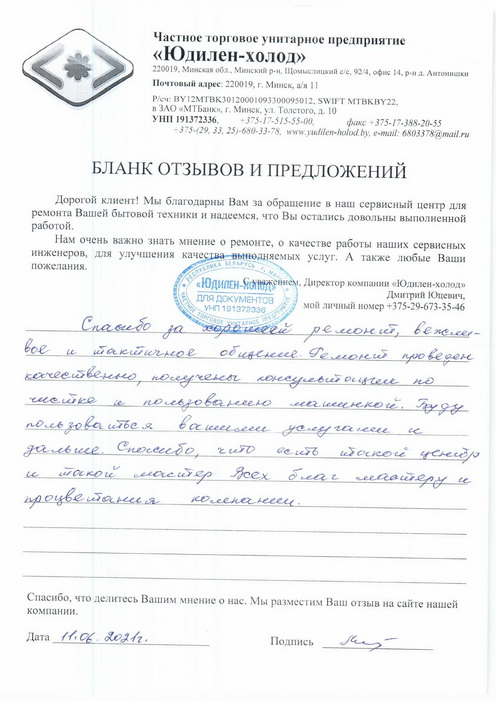 Частное торговое унитарное предприятие
«Юдилен-холод»
220019, Минская обл., Минский р-н, Щомыслицкий с/с, 92/4, офис 14, р-н д. Антонишки
Почтовый адрес: 220019, г. Минск, а/я 11
Р/сч: BY12MTBK30120001093300095012, SWIFT MTBKBY22,
в ЗАО «МТБанк», г. Минск, ул. Толстого, д. 10
УНП 191372336, +375-17-515-55-00, факс +375-17-388-20-55
+375-(29, 33, 25)-680-33-78, www.yudilen-holod.by, e-mail: 6803378@mail.ru
БЛАНК ОТЗЫВОВ И ПРЕДЛОЖЕНИЙ
Дорогой клиент! Мы благодарны Вам за обращение в наш сервисный центр для
ремонта Вашей бытовой техники и надеемся, что Вы остались довольны выполненной
работой.
Нам очень важно знать мнение о ремонте, о качестве работы наших сервисных
инженеров, для улучшения качества выполняемых услуг. А также любые Ваши
пожелания.
С уважением, Директор компании «Юдилен-холод»
Дмитрий Юцевич,
мой личный номер +375-29-673-35-46
РЕСПУБЛИКА БЕЛАРУСЬ г. Минск
«ЮДИЛЕН-ХОЛОД»
ДЛЯ ДОКУМЕНТОВ
УНП 191372336
ЧАСТНОЕ ТОРГОВОЕ УНИТАРНОЕ ПРЕДПРИЯТИЕ
Спасибо за хороший ремонт, вежли-
вое и тактичное общение. Ремонт проведен
качественно, получены консультации по
чистке и пользованию машинкой. Буду
пользоваться вашими услугами и
дальше. Спасибо, что есть такой центр
и такой мастер Всех благ мастеру и
процветания компании.
Спасибо, что делитесь Вашим мнение о нас. Мы разместим Ваш отзыв на сайте нашей
компании.
Дата 11.06.2021г. Подпись